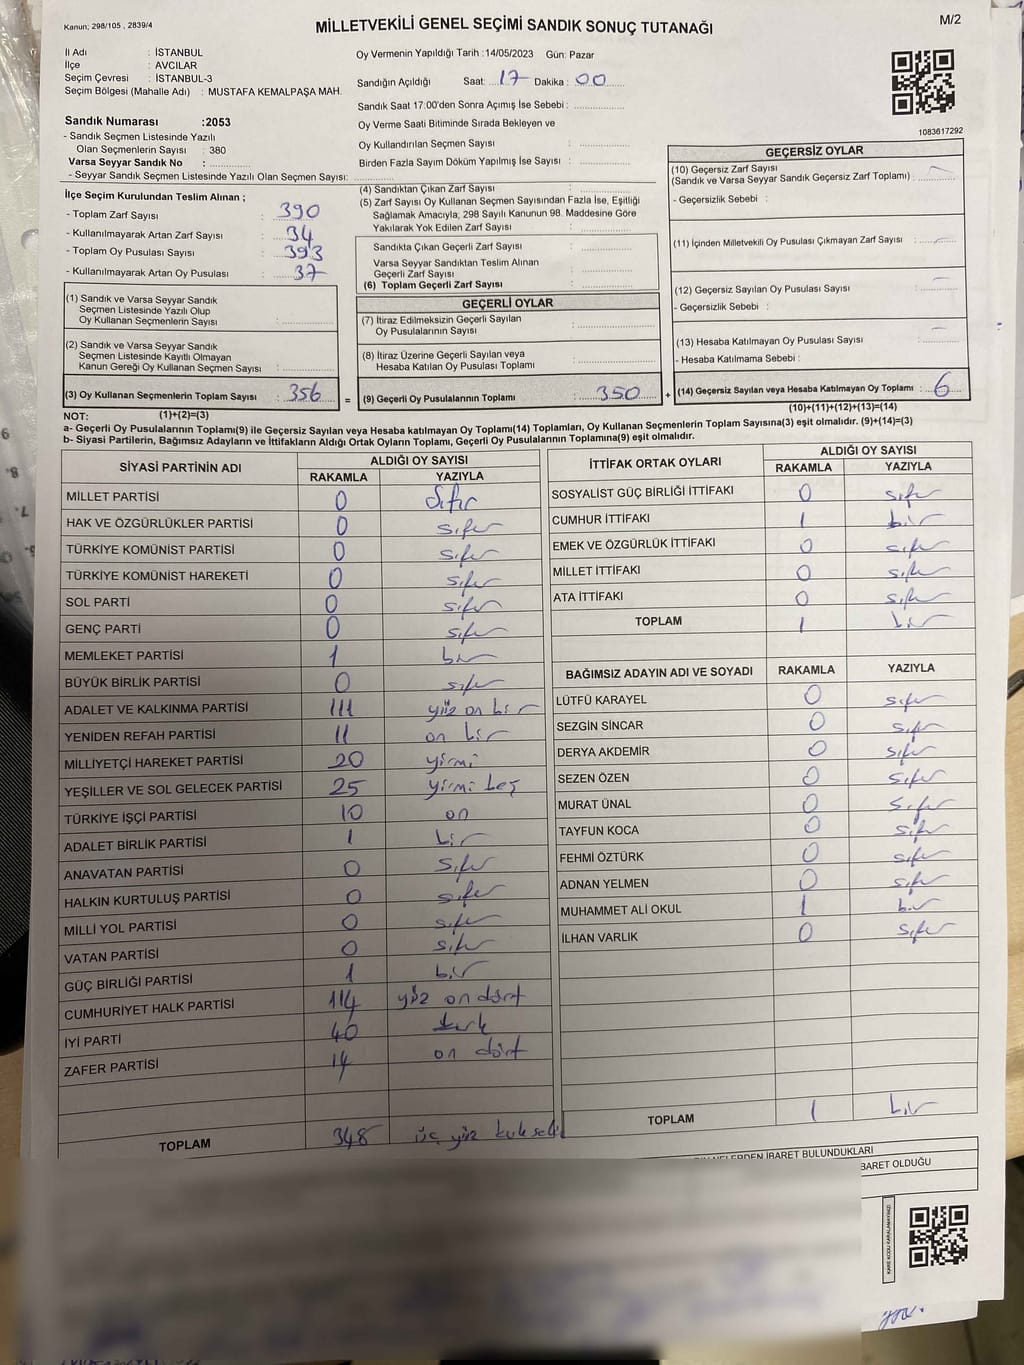 Kanun; 298/105 , 2839/4
MİLLETVEKİLİ GENEL SEÇİMİ SANDIK SONUÇ TUTANAĞI
M/2
İl Adı : İSTANBUL
İlçe : AVCILAR
Seçim Çevresi : İSTANBUL-3
Seçim Bölgesi (Mahalle Adı) : MUSTAFA KEMALPAŞA MAH.
Sandık Numarası :2053
- Sandık Seçmen Listesinde Yazılı
Olan Seçmenlerin Sayısı : 380
Varsa Seyyar Sandık No :
- Seyyar Sandık Seçmen Listesinde Yazılı Olan Seçmen Sayısı:
Oy Vermenin Yapıldığı Tarih :14/05/2023 Gün: Pazar
Sandığın Açıldığı Saat: 17 Dakika : 00
Sandık Saat 17:00'den Sonra Açımış İse Sebebi :
Oy Verme Saati Bitiminde Sırada Bekleyen ve
Oy Kullandırılan Seçmen Sayısı :
Birden Fazla Sayım Döküm Yapılmış İse Sayısı :
1083617292
İlçe Seçim Kurulundan Teslim Alınan ;
- Toplam Zarf Sayısı : 390
- Kullanılmayarak Artan Zarf Sayısı : 34
- Toplam Oy Pusulası Sayısı : 393
- Kullanılmayarak Artan Oy Pusulası : 37
(1) Sandık ve Varsa Seyyar Sandık
Seçmen Listesinde Yazılı Olup
Oy Kullanan Seçmenlerin Sayısı :
(2) Sandık ve Varsa Seyyar Sandık
Seçmen Listesinde Kayıtlı Olmayan
Kanun Gereği Oy Kullanan Seçmen Sayısı :
(3) Oy Kullanan Seçmenlerin Toplam Sayısı : 356
(4) Sandıktan Çıkan Zarf Sayısı :
(5) Zarf Sayısı Oy Kullanan Seçmen Sayısından Fazla İse, Eşitliği
Sağlamak Amacıyla; 298 Sayılı Kanunun 98. Maddesine Göre
Yakılarak Yok Edilen Zarf Sayısı :
Sandıkta Çıkan Geçerli Zarf Sayısı :
Varsa Seyyar Sandıktan Teslim Alınan
Geçerli Zarf Sayısı :
(6) Toplam Geçerli Zarf Sayısı :
GEÇERLİ OYLAR
(7) İtiraz Edilmeksizin Geçerli Sayılan
Oy Pusulalarının Sayısı :
(8) İtiraz Üzerine Geçerli Sayılan veya
Hesaba Katılan Oy Pusulası Toplamı :
= (9) Geçerli Oy Pusulalarının Toplamı : 350
GEÇERSİZ OYLAR
(10) Geçersiz Zarf Sayısı
(Sandık ve Varsa Seyyar Sandık Geçersiz Zarf Toplamı) :
- Geçersizlik Sebebi :
(11) İçinden Milletvekili Oy Pusulası Çıkmayan Zarf Sayısı :
(12) Geçersiz Sayılan Oy Pusulası Sayısı :
- Geçersizlik Sebebi :
(13) Hesaba Katılmayan Oy Pusulası Sayısı :
- Hesaba Katılmama Sebebi :
+ (14) Geçersiz Sayılan veya Hesaba Katılmayan Oy Toplamı : 6
NOT: (1)+(2)=(3)
(10)+(11)+(12)+(13)=(14)
a- Geçerli Oy Pusulalarının Toplamı(9) ile Geçersiz Sayılan veya Hesaba Katılmayan Oy Toplamı(14) Toplamları, Oy Kullanan Seçmenlerin Toplam Sayısına(3) eşit olmalıdır. (9)+(14)=(3)
b- Siyasi Partilerin, Bağımsız Adayların ve İttifakların Aldığı Ortak Oyların Toplamı, Geçerli Oy Pusulalarının Toplamına(9) eşit olmalıdır.
SİYASİ PARTİNİN ADI ALDIĞI OY SAYISI
RAKAMLA YAZIYLA
MİLLET PARTİSİ 0 Sıfır
HAK VE ÖZGÜRLÜKLER PARTİSİ 0 sıfır
TÜRKİYE KOMÜNİST PARTİSİ 0 sıfır
TÜRKİYE KOMÜNİST HAREKETİ 0 sıfır
SOL PARTİ 0 sıfır
GENÇ PARTİ 0 sıfır
MEMLEKET PARTİSİ 1 bir
BÜYÜK BİRLİK PARTİSİ 0 sıfır
ADALET VE KALKINMA PARTİSİ 111 yüz on bir
YENİDEN REFAH PARTİSİ 11 on bir
MİLLİYETÇİ HAREKET PARTİSİ 20 yirmi
YEŞİLLER VE SOL GELECEK PARTİSİ 25 yirmi beş
TÜRKİYE İŞÇİ PARTİSİ 10 on
ADALET BİRLİK PARTİSİ 1 bir
ANAVATAN PARTİSİ 0 sıfır
HALKIN KURTULUŞ PARTİSİ 0 sıfır
MİLLİ YOL PARTİSİ 0 sıfır
VATAN PARTİSİ 0 sıfır
GÜÇ BİRLİĞİ PARTİSİ 1 bir
CUMHURİYET HALK PARTİSİ 114 yüz on dört
İYİ PARTİ 40 kırk
ZAFER PARTİSİ 14 on dört
TOPLAM 348 üç yüz kırk sekiz
İTTİFAK ORTAK OYLARI ALDIĞI OY SAYISI
RAKAMLA YAZIYLA
SOSYALİST GÜÇ BİRLİĞİ İTTİFAKI 0 sıfır
CUMHUR İTTİFAKI 1 bir
EMEK VE ÖZGÜRLÜK İTTİFAKI 0 sıfır
MİLLET İTTİFAKI 0 sıfır
ATA İTTİFAKI 0 sıfır
TOPLAM 1 bir
BAĞIMSIZ ADAYIN ADI VE SOYADI RAKAMLA YAZIYLA
LÜTFÜ KARAYEL 0 sıfır
SEZGİN SİNCAR 0 sıfır
DERYA AKDEMİR 0 sıfır
SEZEN ÖZEN 0 sıfır
MURAT ÜNAL 0 sıfır
TAYFUN KOCA 0 sıfır
FEHMİ ÖZTÜRK 0 sıfır
ADNAN YELMEN 0 sıfır
MUHAMMET ALİ OKUL 1 bir
İLHAN VARLIK 0 sıfır
TOPLAM 1 bir
İBARET BULUNDUKLARI
OLDUĞU